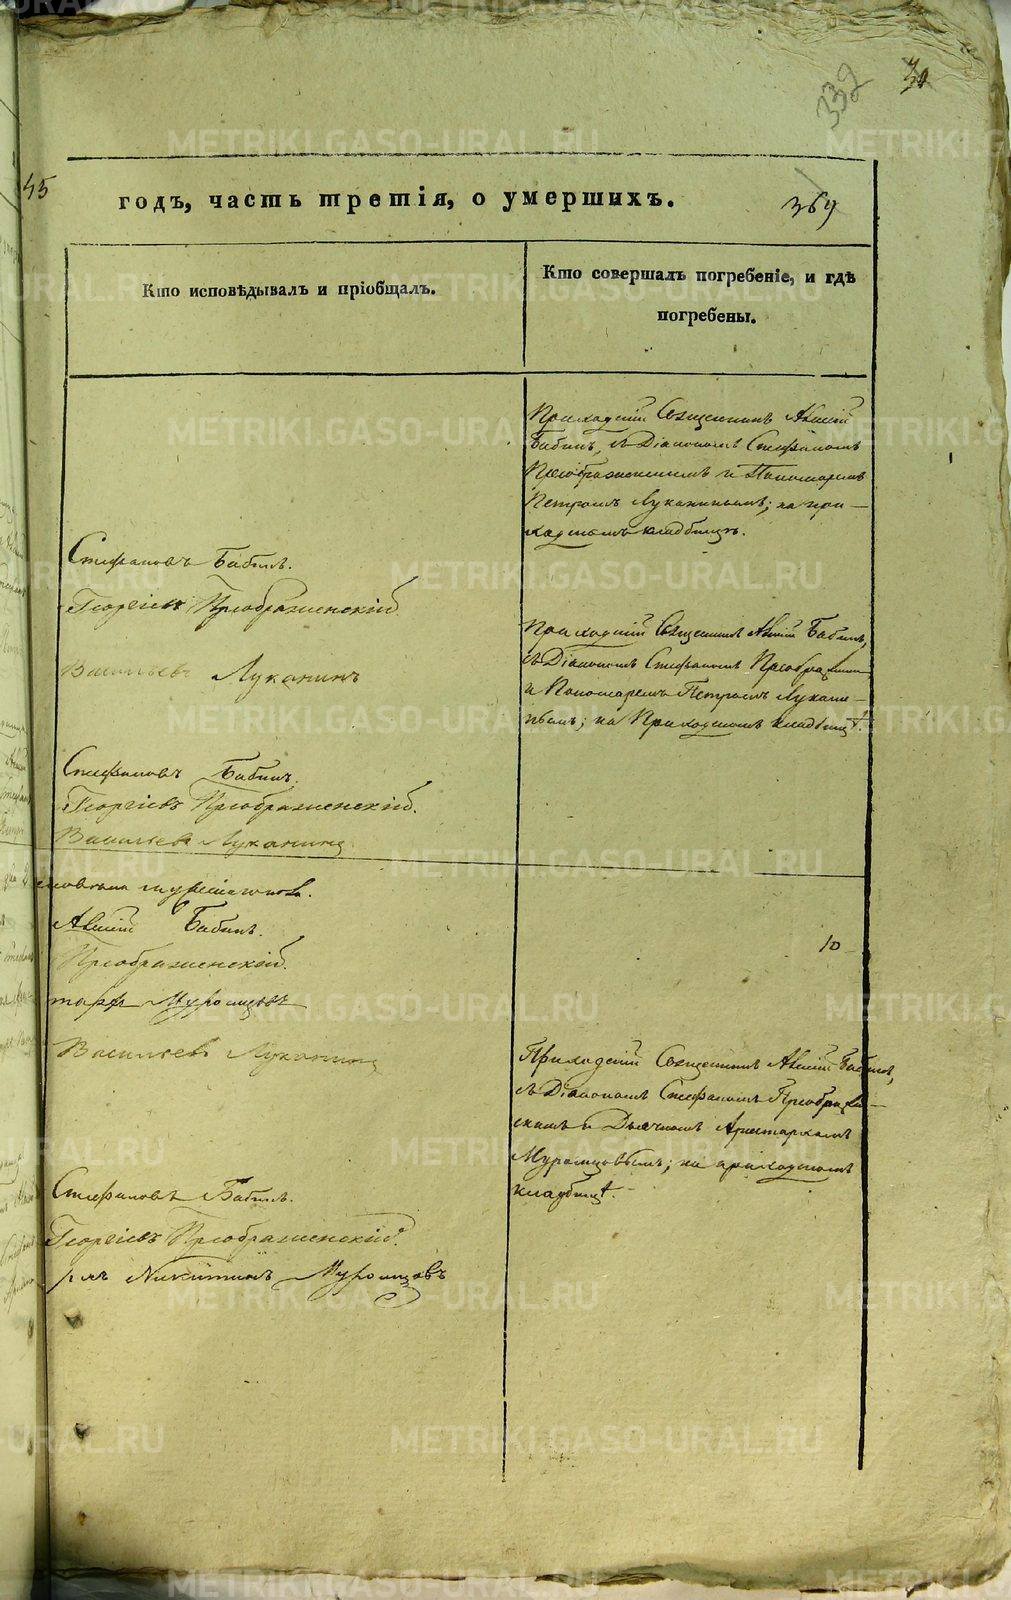 30
332
45
годъ, часть третія, о умершихъ.
369
Кто исповѣдывалъ и пріобщалъ.
Кто совершалъ погребеніе, и гдѣ
погребены.
Приходскій Священникъ Алексій
Бабинъ, съ Діакономъ Стефаномъ
Преображенскимъ и Пономаремъ
Петромъ Луканинымъ; на при-
ходскомъ кладбищѣ.
Стефановъ Бабинъ.
Георгіевъ Преображенскій
Васильевъ Луканинъ
Приходскій Священникъ Алексій Бабинъ,
съ Діакономъ Стефаномъ
и Пономаремъ Петромъ Лукани-
нымъ; на Приходскомъ кладбищѣ.
Стефановъ Бабинъ.
Георгіевъ Преображенскій.
Васильевъ Луканинъ
Алексій Бабинъ.
Преображенскій.
10
тархъ Муромцовъ
Васильевъ Луканинъ
Приходскій Священникъ Алексій Бабинъ,
съ Діакономъ Стефаномъ Преображен-
скимъ и Дьячкомъ Аристархомъ
Муромцовымъ; на приходскомъ
кладбищѣ.
Стефановъ Бабинъ.
Георгіевъ Преображенскій.
Никитинъ Муромцовъ
METRIKI.GASO-URAL.RU